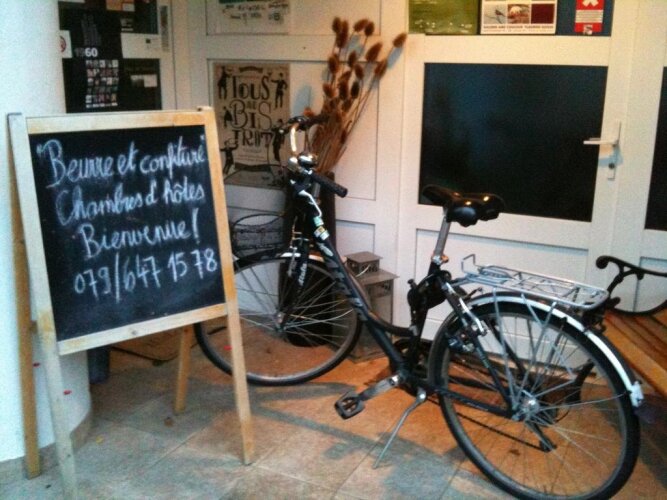 "Beurre et confiture"
Chambres d'hôtes
Bienvenue!
079/647 15 78
1960
TOUS
AU
BIS
TROT